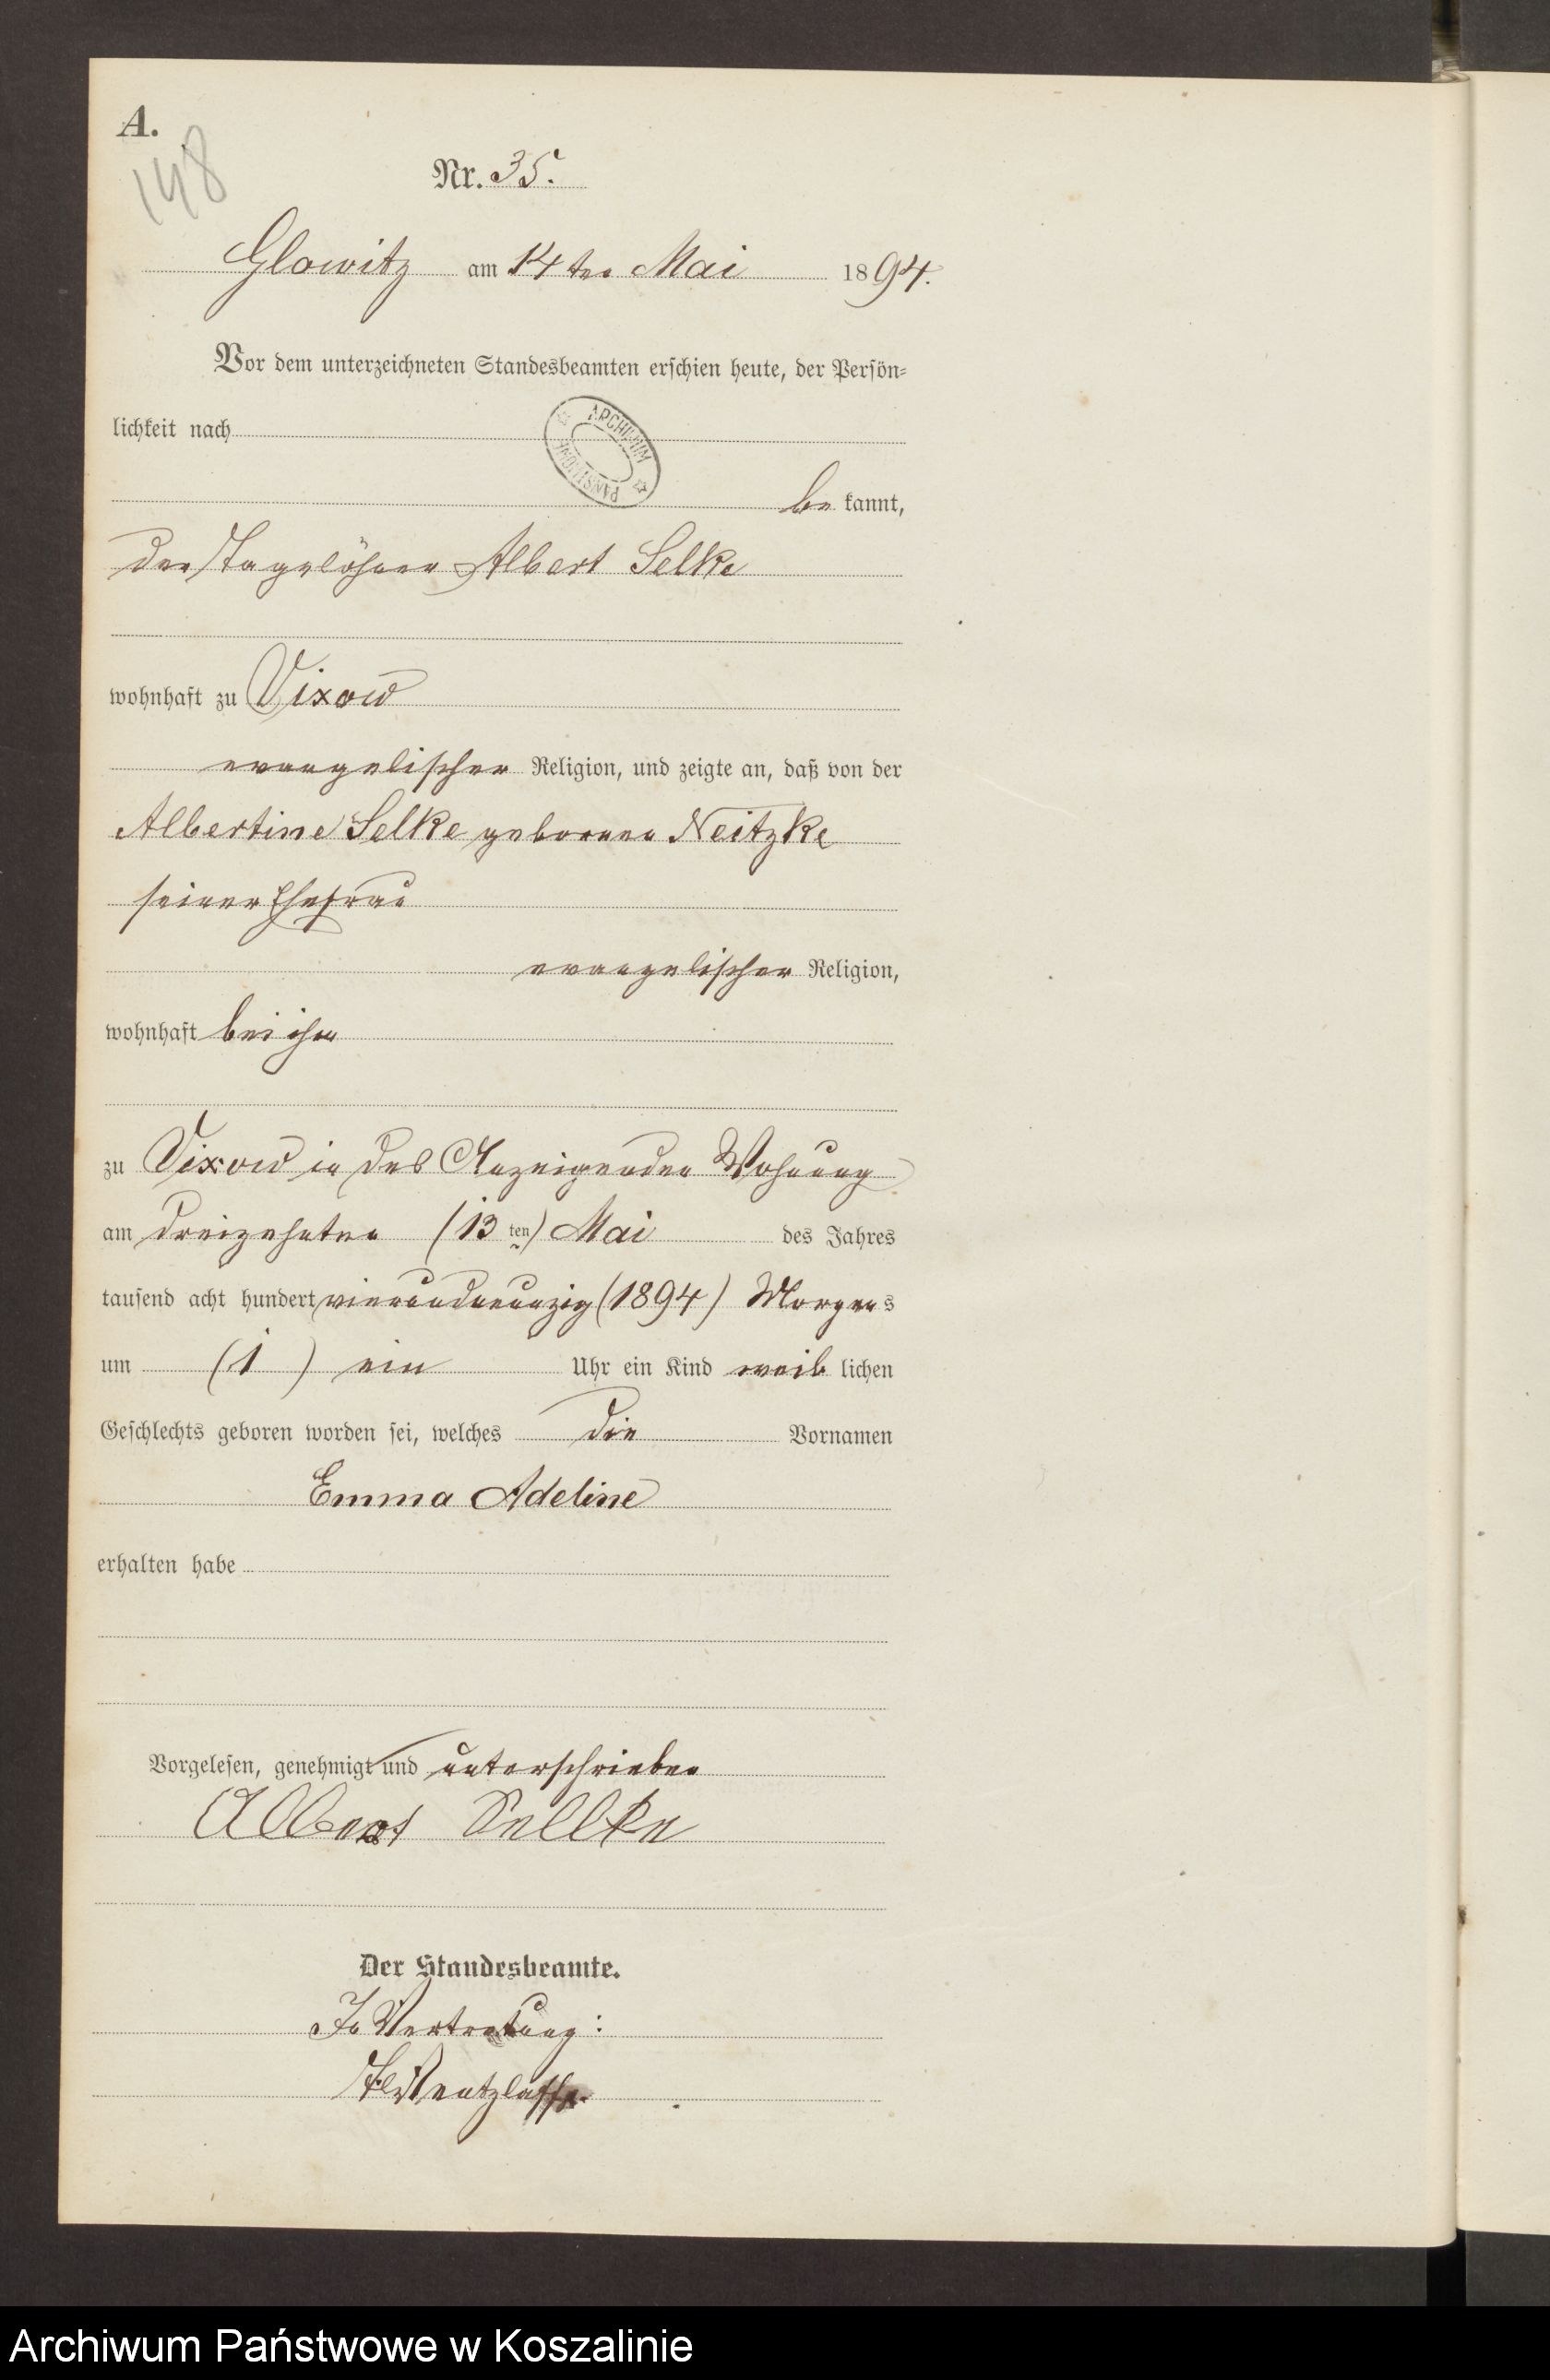 A.
148
Nr. 35.
Glowitz am 14ten Mai 1894.
Vor dem unterzeichneten Standesbeamten erschien heute, der Persön-
lichkeit nach
ARCHIWUM PAŃSTWOWE
be kannt,
der Tagelöhner Albert Selke
wohnhaft zu Vixow
evangelischer Religion, und zeigte an, daß von der
Albertine Selke geborenen Neitzke
seiner Ehefrau
evangelischer Religion,
wohnhaft bei ihm
zu Vixow in des Anzeigenden Wohnung
am dreizehnten (13 ten) Mai des Jahres
tausend acht hundert vierundneunzig (1894) Morgens
um (1) ein Uhr ein Kind weib lichen
Geschlechts geboren worden sei, welches die Vornamen
Emma Adeline
erhalten habe
Vorgelesen, genehmigt und unterschrieben
Albert Sellke
Der Standesbeamte.
In Vertretung:
Wentzlaff
Archiwum Państwowe w Koszalinie